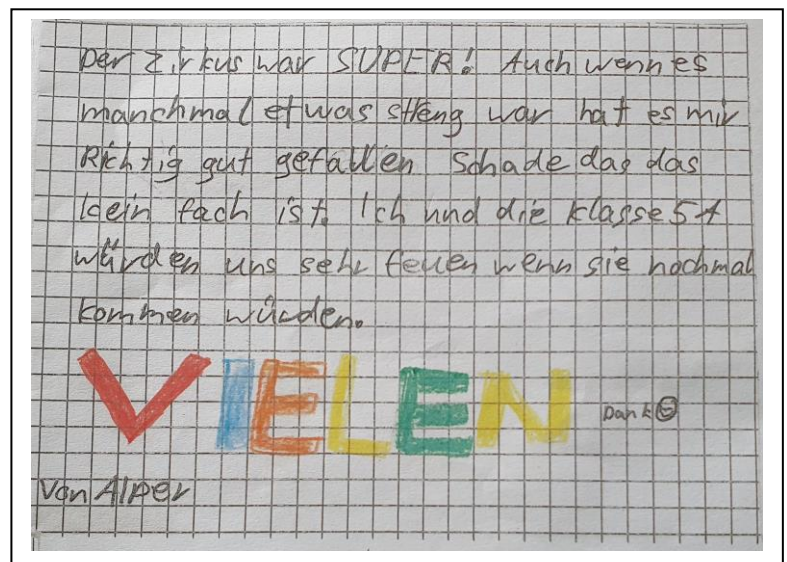 Der Zirkus war SUPER! Auch wenn es
manchmal etwas streng war hat es mir
Richtig gut gefallen Schade das das
kein fach ist. Ich und die klasse 5A
würden uns sehr feuen wenn sie nochmal
kommen würden.
VIELEN Dank
Von Alper